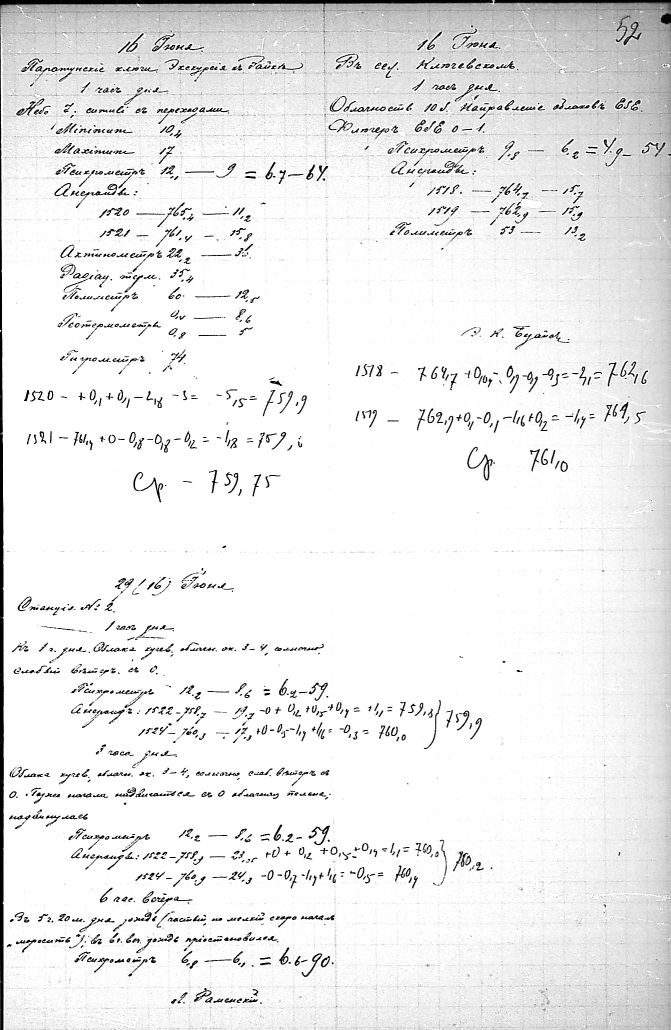 52
16 Iюня
Паратунскiе ключи. Экскурсiя къ
1 часъ дня
Небо 7, ситивi съ переходами
Minimum 10,4
Maximum 17
Психрометръ 12,1 — 9 = 6.7 — 64.
Анероиды:
1520 — 765,4 — 11,2
1521 — 761,4 — 15,8
Актинометръ 22,2 — 36
Радiац. терм. 35,4
Полиметръ 60 — 12,5
Геотермометры 0,4 — 8,6
0,8 — 5
Гигрометръ 74.
1520 - +0,1+0,1-2,8 -3= -5,5= 759,9
1521 - 761,4 +0-0,8-0,8-0,2 = -1,8 = 759,6
Ср. - 759,75
16 Iюня
Въ сел. Ключевскомъ
1 часъ дня.
Облачность 10 S. Направленiе облаковъ ESE.
Флюгеръ ESE 0-1.
Психрометръ 9,8 — 6,2 = 4.9 - 54
Анероиды:
1518 — 764,7 — 15,7
1519 — 762,9 — 15,9
Полиметръ 53 — 13,2
1518 - 764,7 = -2,1 = 762,6
1519 - 762,9+0,1-0,1-1,6+0,2 = -1,4 =
Ср 761,0
29 (16) Iюня
Станцiя № 2.
1 часъ дня
Къ 1 ч. дня. Облака кучев, облачн. ок. 3-4, солнечно
слабый вѣтеръ съ О.
Психрометръ 12.2 — 8.6 = 6.2 - 59.
Анероидъ: 1522 - 758,7 — 19,7 -0 + 0,2 +0,5 +0,4 = +1,1 = 759,8
1524 - 760,3 — 17,3 +0-0,5-1,4+1,6 = -0,3 = 760,0
759,9
3 часа дня
Облака кучев, облачн. ок. 3-4, солнечно, слаб. вѣтеръ съ
О. Позже начала надвигаться съ О облачная пелена;
надвинулась
Психрометръ 12.2 — 8,6 = 6.2 - 59.
Анероиды: 1522 - 758,9 — +0 + 0,2 +0,5 +0,4 = 1,1 = 760,0
1524 - 760,9 — 24,3 -0-0,7-1,4+1,6 = -0,5 = 760,4
760,2.
6 час. вечера
Въ 5 ч. 20 м. дня дождь (частый, но мелкiй, скоро началъ
„моросить"); въ 6 ч. веч. дождь прiостановился.
Психрометръ 6,8 — 6,1 = 6.6 - 90.
Л. Раменскiй.